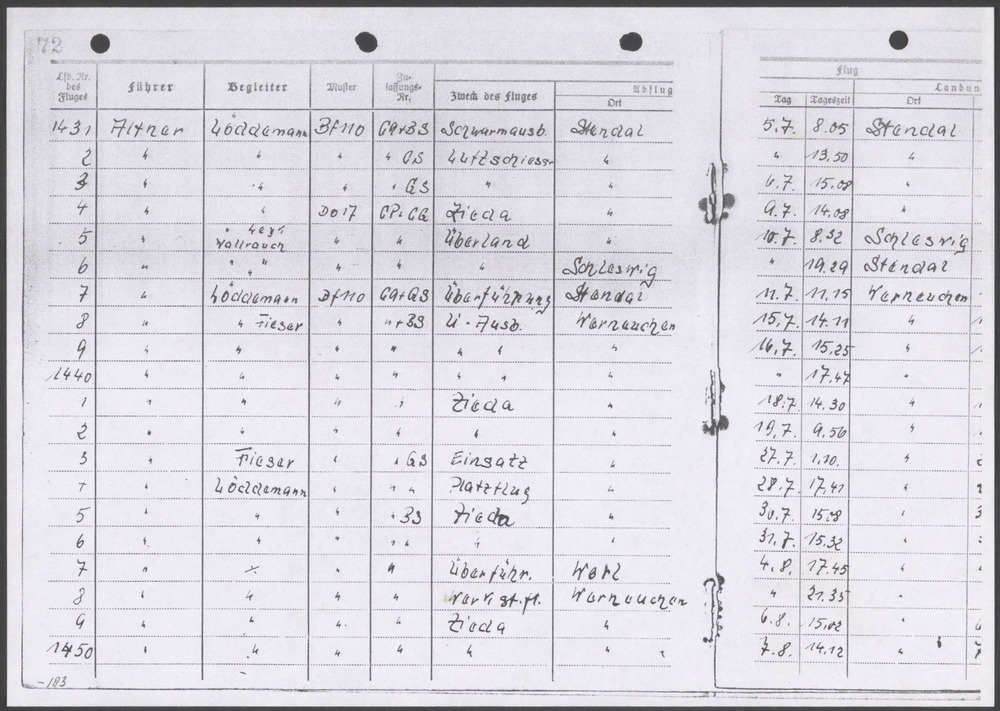 72
Lfd. Nr. des Fluges Führer Begleiter Muster Zulassungs-Nr. Zweck des Fluges Abflug Ort Flug Tag Tageszeit Landun Ort
1431 Altner Löddemann Bf110 G9+BS Schwarmausb. Stendal 5.7. 8.05 Stendal
2 " " " " GS Luftschiess- " " 13.50 "
3 " " " " GS " " 6.7. 15.08 "
4 " " Do17 CP+CQ Zieda " 9.7. 14.08 "
5 " " Wallrauch " " Überland " 10.7. 8.32 Schleswig
6 " " " " " " Schleswig " 19.29 Stendal
7 " Löddemann Bf110 G9+GS Überführung Stendal 11.7. 11.15 Werneuchen
8 " " Fieser " "+BS Ü-Ausb. Werneuchen 15.7. 14.11 "
9 " " " " " " " 16.7. 15.25 "
1440 " " " " " " " " 17.47 "
1 " " " " Zieda " 18.7. 14.30 "
2 " " " " " " 19.7. 9.56 "
3 " Fieser " " GS Einsatz " 27.7. 1.10. "
Löddemann " " " Platzflug " 28.7. 17.41 "
5 " " " BS Zieda " 30.7. 15.08 "
6 " " " " " " " 31.7. 15.32 "
7 " " " " Überführ. Werl 4.8. 17.45 "
8 " " " " Werkst.fl. Werneuchen " 21.35 "
9 " " " " Zieda " 6.8. 15.02 "
1450 " " " " " " 7.8. 14.12 "
-183